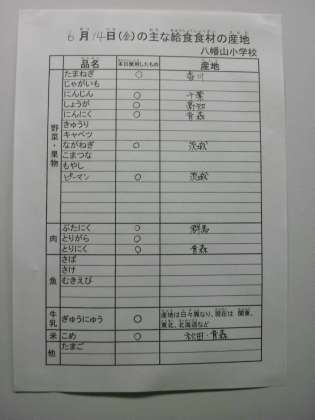 6月14日(金)の主な給食食材の産地
八幡山小学校
品名 本日使用したもの 産地
野菜・果物
たまねぎ ○ 香川
じゃがいも
にんじん ○ 千葉
しょうが ○ 高知
にんにく ○ 青森
きゅうり
キャベツ
ながねぎ ○ 茨城
こまつな
もやし
ピーマン ○ 茨城
肉
ぶたにく ○ 群馬
とりがら ○
とりにく ○ 青森
魚
さば
さけ
むきえび
牛乳 ぎゅうにゅう ○ 産地は日々異なり、現在は 関東、
東北、北海道など
米 こめ ○ 秋田・青森
他 たまご